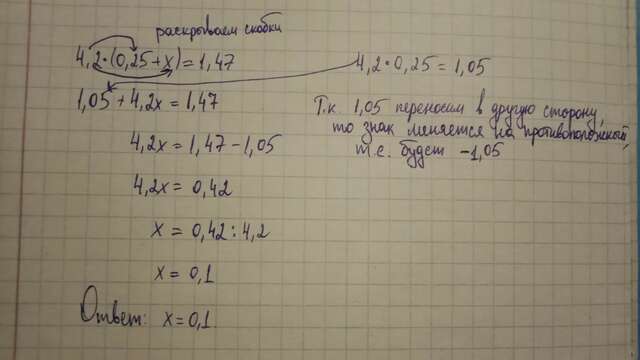 раскрываем скобки
4,2·(0,25+x)=1,47
4,2·0,25=1,05
1,05+4,2x=1,47
Т.к. 1,05 переносим в другую сторону,
4,2x=1,47-1,05
то знак меняется на противоположный,
т.е. будет -1,05
4,2x=0,42
x=0,42:4,2
x=0,1
Ответ: x=0,1.